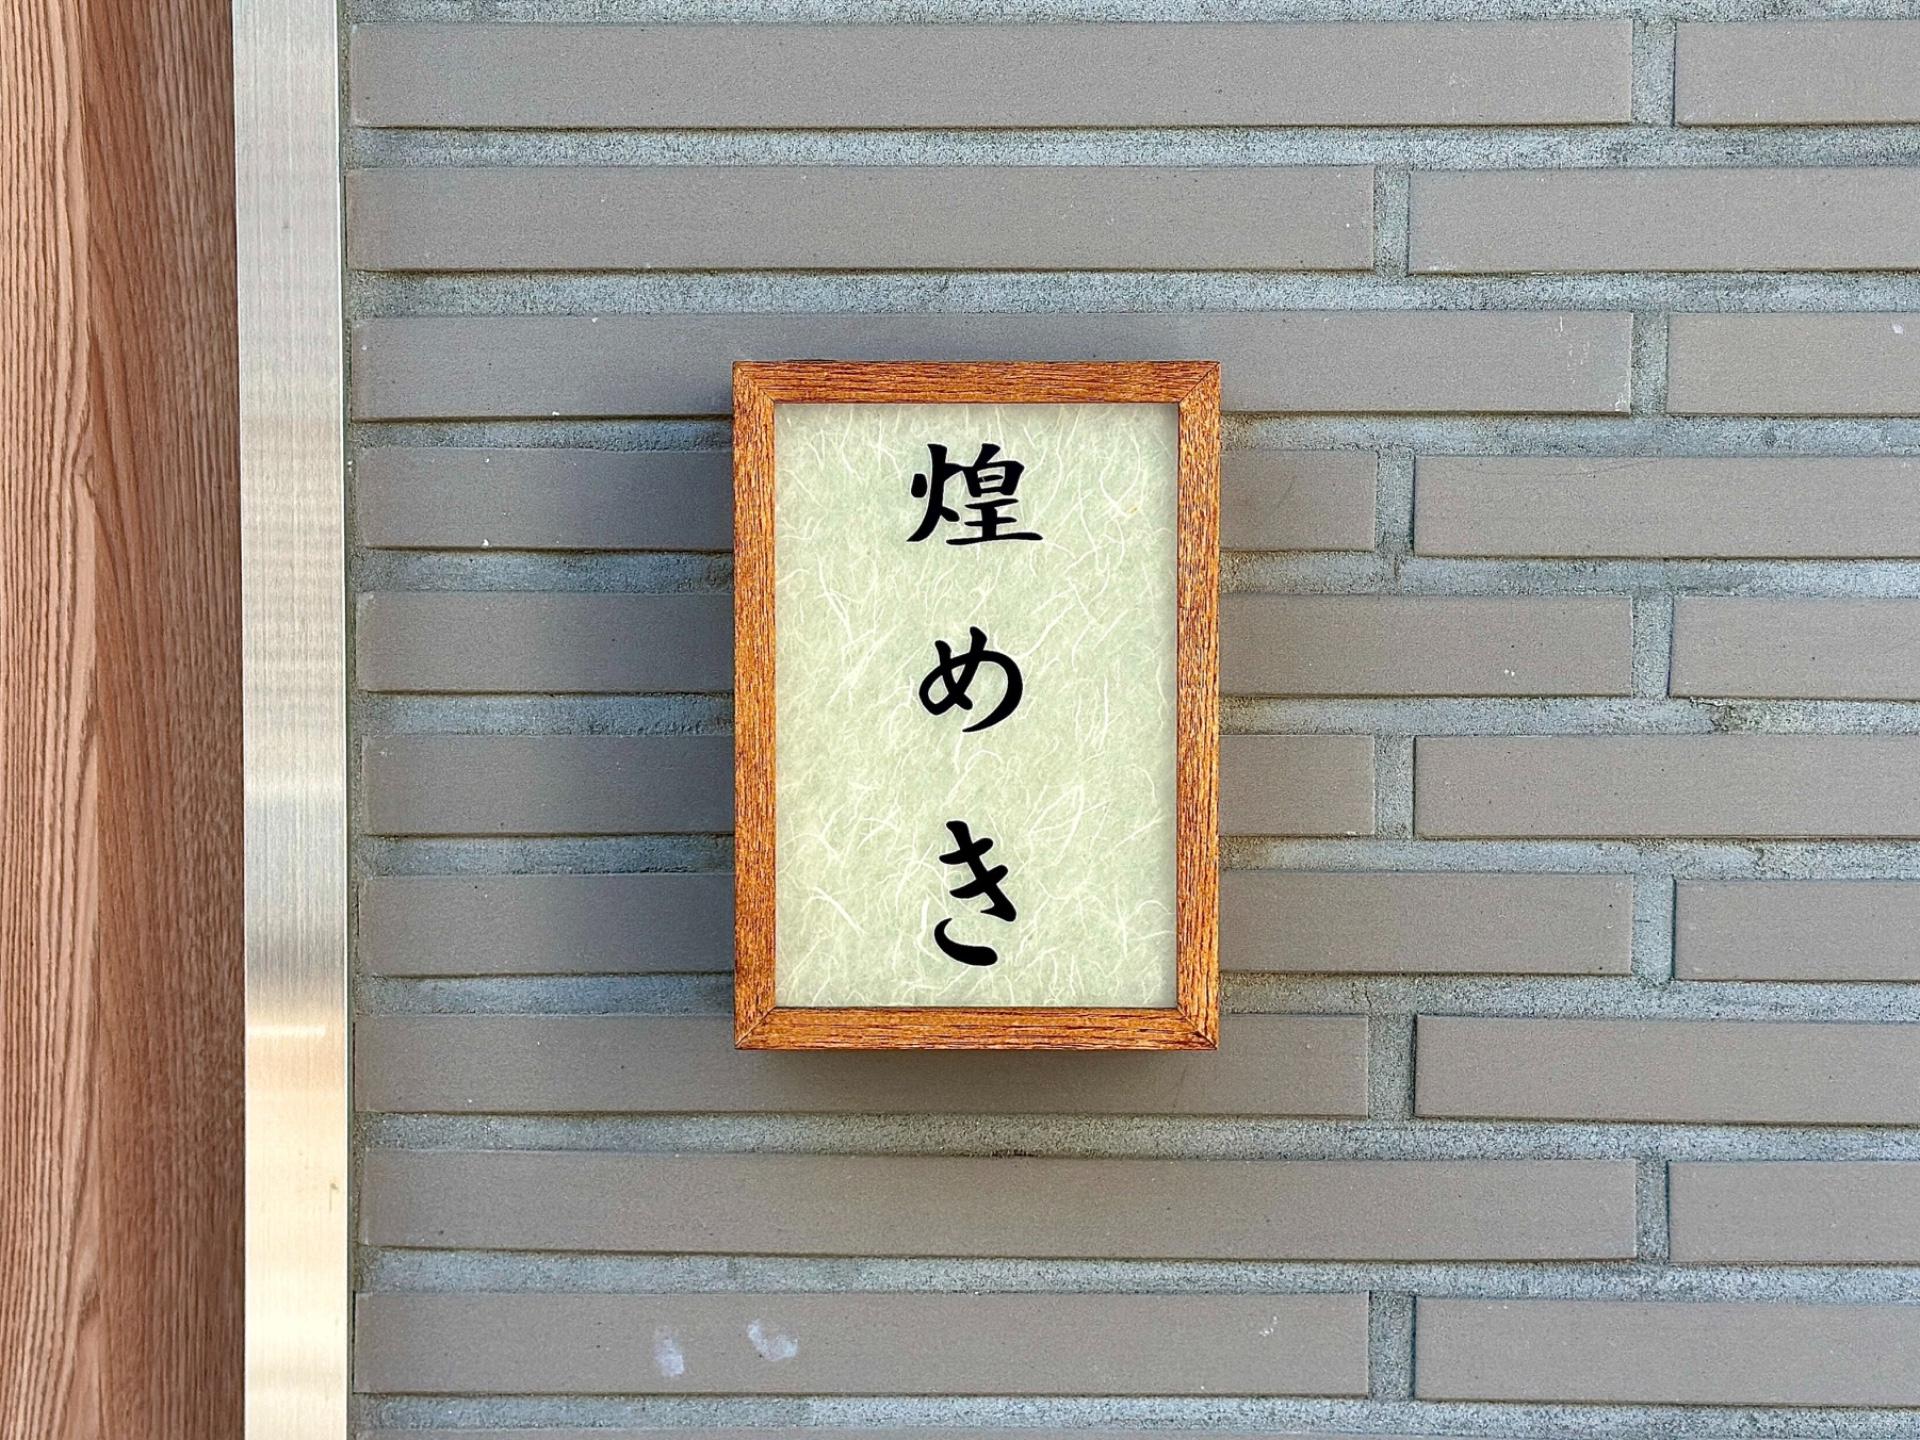 煌めき